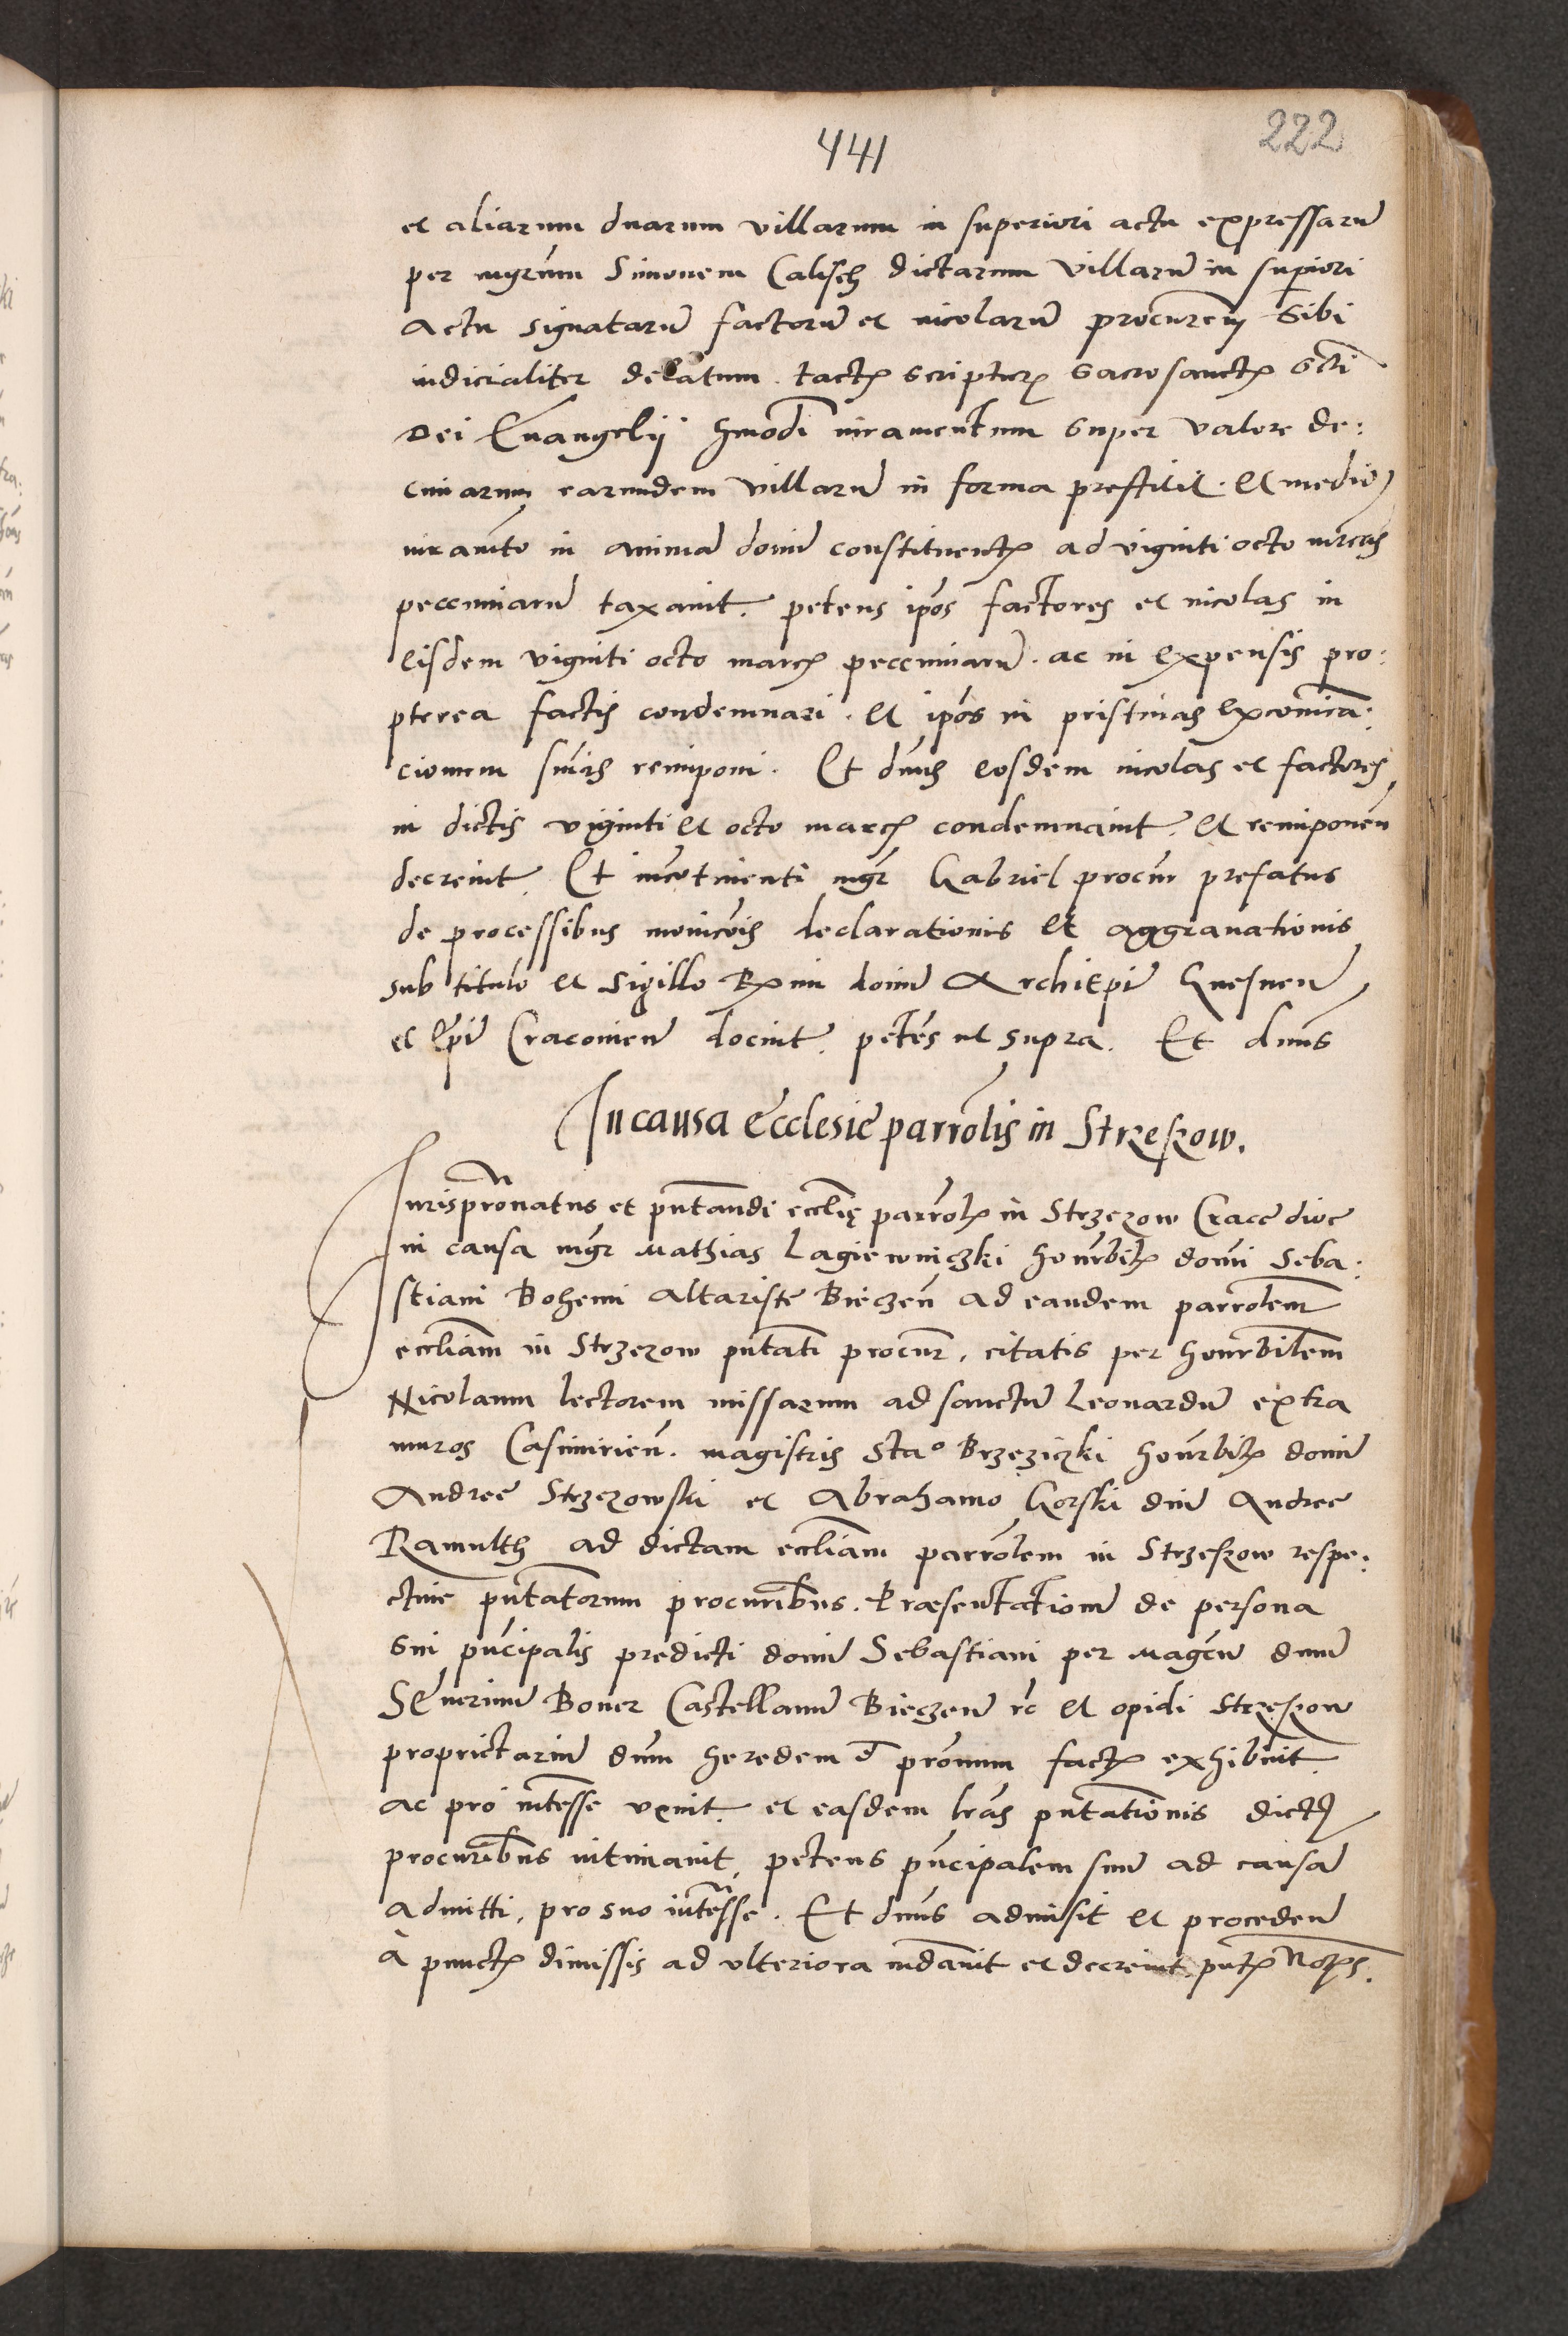 441
222
et aliarum duarum villarum in superiori actu expressarū
per mgrūm Simonem Calisch dictarum villarū in supiori
actu signatarū factorū et incolarū procurem̄ Sibi
iudicialiter delatum. tactꝭ scripturꝭ sacrosanctꝭ sctī
Dei Euangelij hmōdi iuramentum super valore de:
cimarum earumdem villarū in forma prestitit. Et medio
iuramto in animā domī constituentꝭ ad viginti octo mrcas
peccuniarū taxauit. petens ipōs factores et incolas in
eisdem viginti octo marcꝭ peccuniarū. ac in expensis pro:
pterea factis condemnari. et ipōs in pristinas excōmica:
cionum snīas reimponi. Et dnūs eosdem incolas et factores
in dictis viginti et octo marcꝭ condemnauit. et reimponen̄
decreuit. Et incōtinenti mgr̄ Gabriel procur̄ prefatus
de processibus monicōis declarationis et aggrauationis
sub titulo et sigillo Rxmi domī Archiepī Gnesnen̄
et Epī Cracouien̄ docuit. petēs ut supra. Et dnūs
In causa Ecclesie parrōlis in Strzeszow.
Jurisprōnatus et pn̄tandi ecclīe parrōlꝭ in Strzezow Crace dioc
in causa mgr̄ Mathias Lagiewniczki honrbilꝭ domī Seba:
stiani Bohemi altariste Bieczen̄ ad eandem parrōlem
eccliam in Strzezow pn̄tati procur̄, citatis per honrbilem
Nicolaum lectorem missarum ad sanctū Leonardū extra
muros Casimirien̄. magistris Staº Brzeziczki honrbilꝭ domī
Andree Strzezowski et Abrahamo Gorski dnī Andree
Ramulth ad dictam eccliam parrōlem in Strzeszow respe:
ctiue pn̄tatorum procuribus. Præsentationē de persona
sui pn̄cipalis predicti domī Sebastiani per magcū dnum
Seuerinū Boner Castellanū Bieczen̄ rc̄ et opidi Strzeszow
proprietariū dnm̄ heredem et prōnum factꝭ exhibuit.
ac pro intesse venit. et easdem lrās pn̄tationis dictꝭ
procuribus intimauit. petens pn̄cipalem suū ad causā
admitti, pro suo intesse. Et dnūs admisit et proceden̄
à punctꝭ dimissis ad vlteriora mdauit et decreuit. pn̄tꝭ Notꝭs.